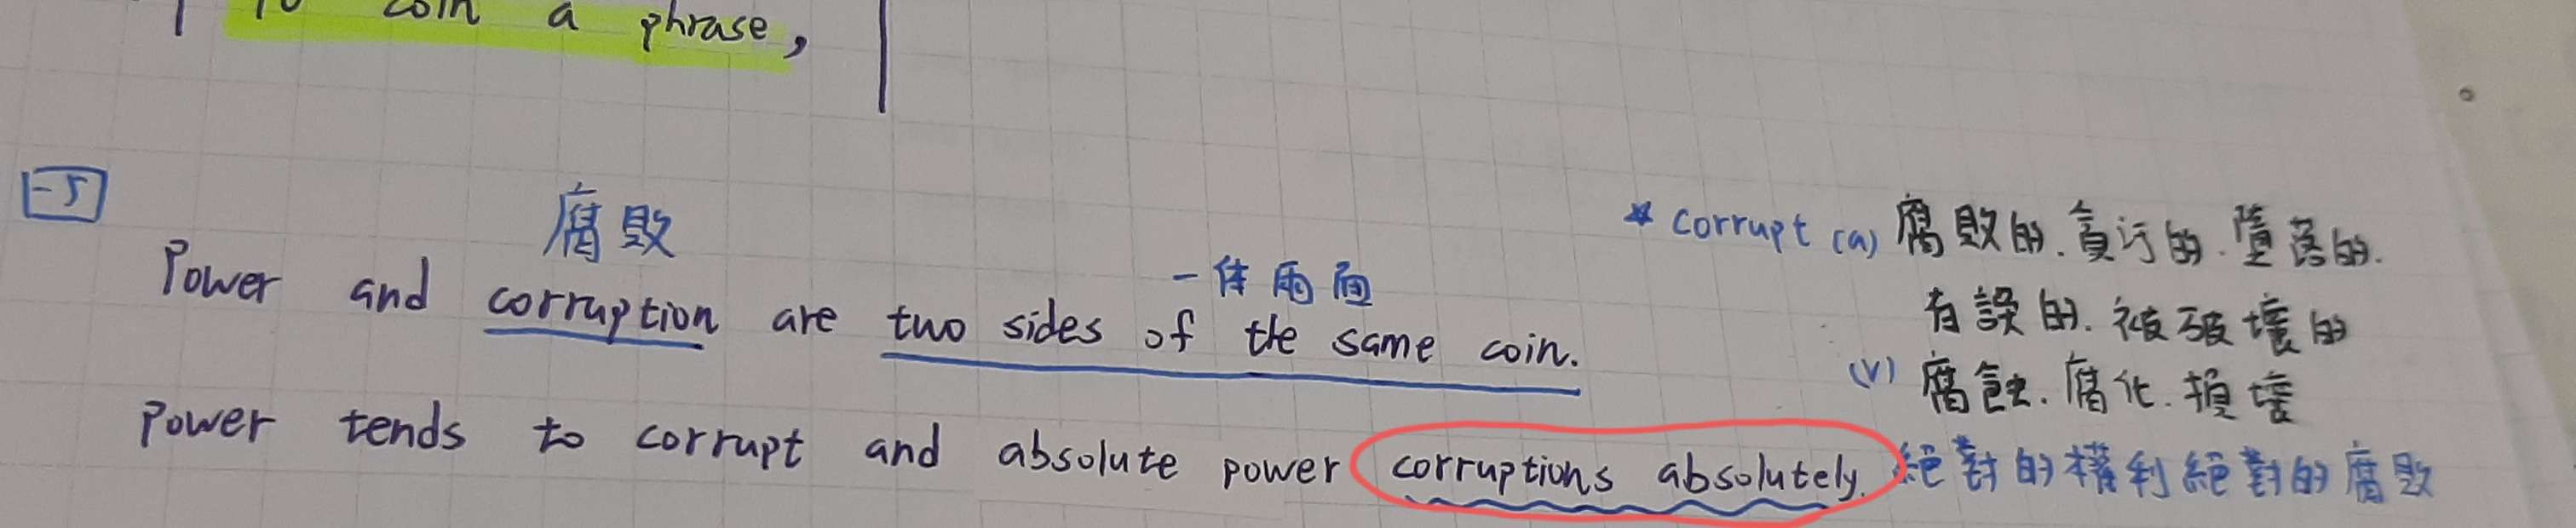 To coin a phrase,
-5
腐敗
Power and corruption are two sides of the same coin.
一体兩面
* corrupt (a) 腐敗的.貪污的.墮落的.
有誤的.被破壞的
(v) 腐蝕.腐化.損壞
Power tends to corrupt and absolute power corruptions absolutely. 絕對的權利絕對的腐敗